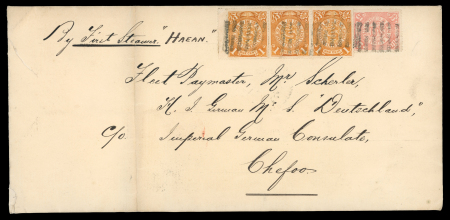 By First Steamer "HAEAN."
Fleet Paymaster, Mr Scherler,
H. I. German M's S "Deutschland",
c/o Imperial German Consulate,
Chefoo